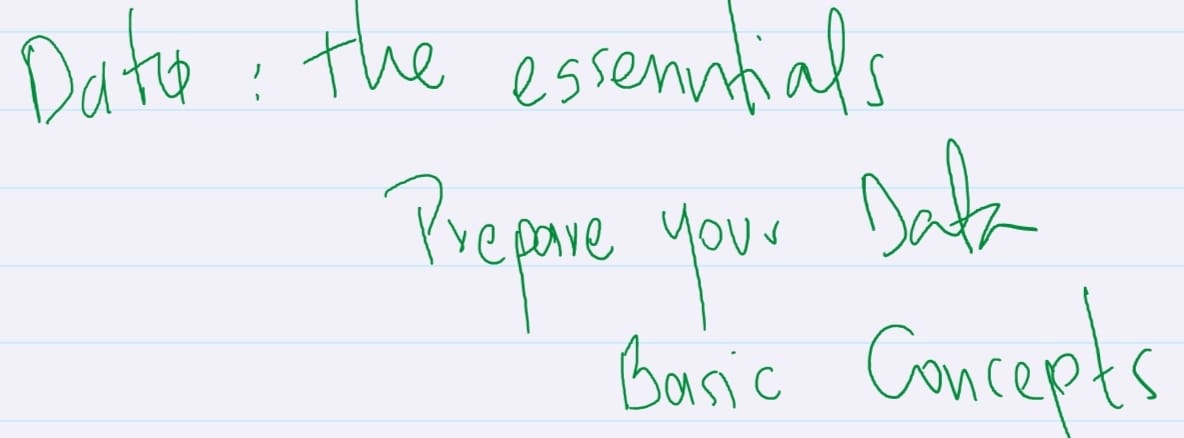 Data: the essentials
Prepare your Data
Basic Concepts